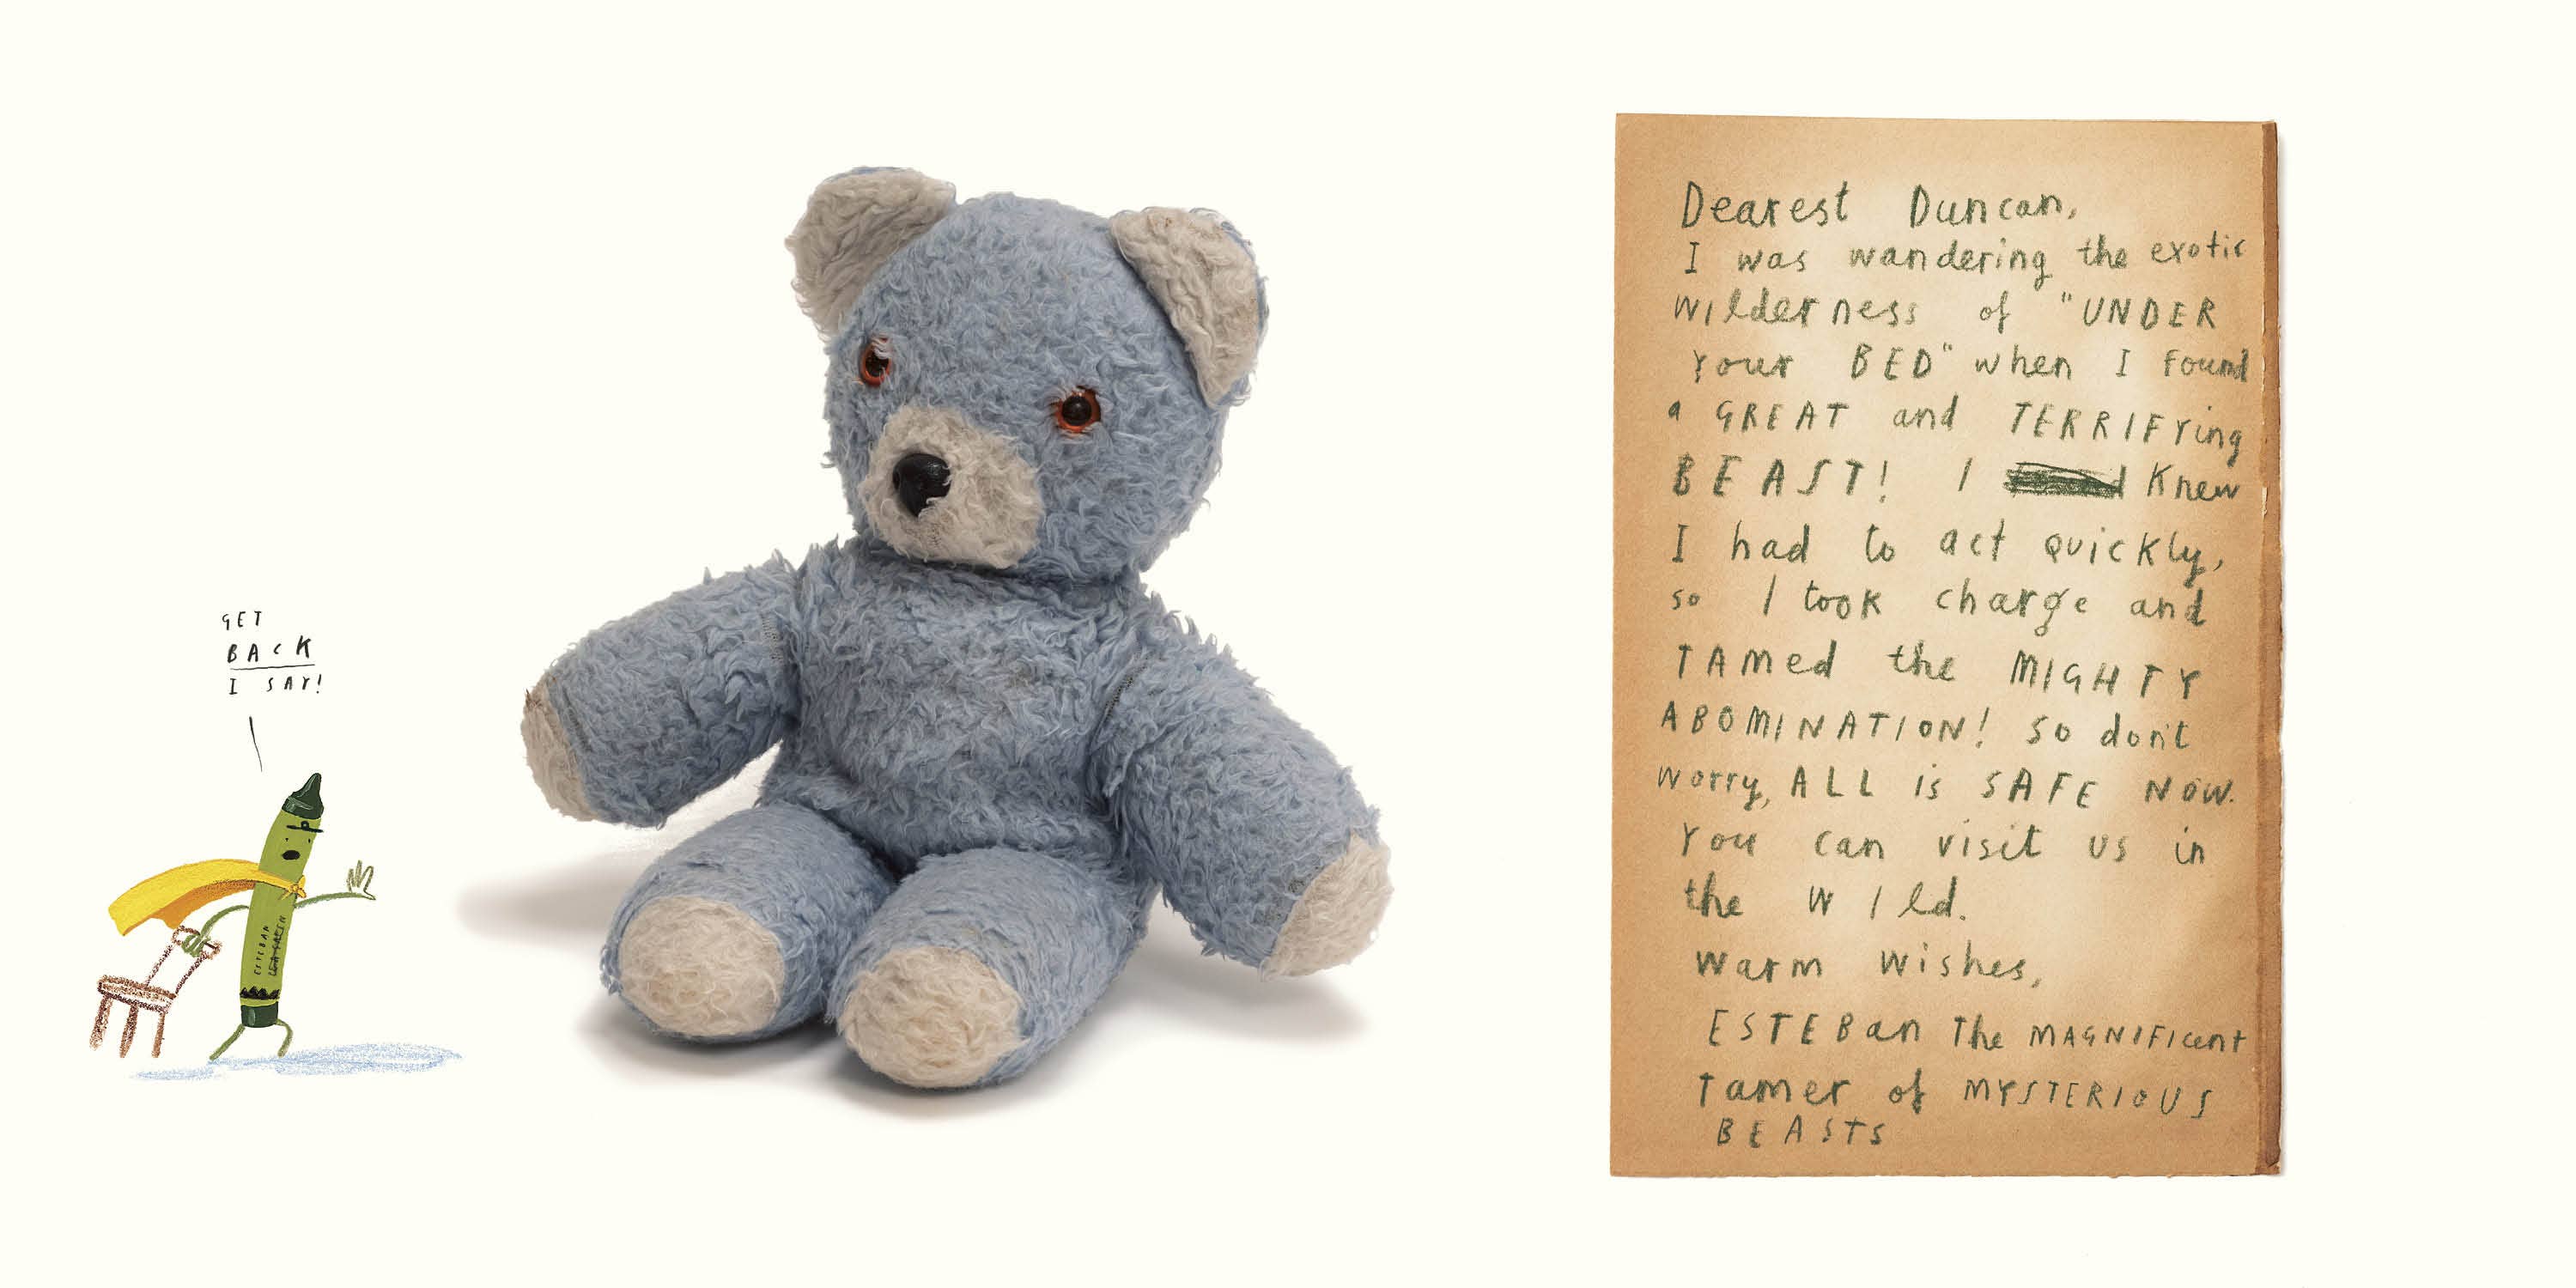 GET
BACK
I SAY!
ESTEBAN
Dearest Duncan,
I was wandering the exotic
wilderness of "UNDER
Your BED" when I Found
a GREAT and TERRIFYing
BEAST! I Knew
I had to act quickly,
so I took charge and
TAMed the MIGHTY
ABOMINATION! So don't
worry, ALL is SAFE NOW.
You can visit us in
the Wild.
Warm Wishes,
ESTEBan The MAGNIFIcent
Tamer of MYSTERIOUS
BEASTS